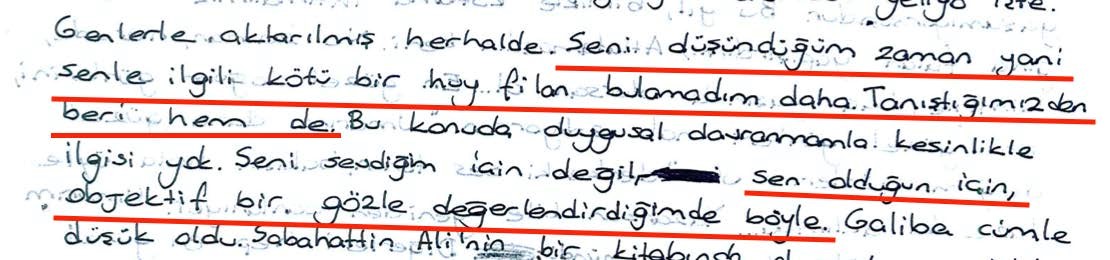 geliyo işte.
Genlerle aktarılmış herhalde. Seni düşündüğüm zaman yani
senle ilgili kötü bir huy filan bulamadım daha. Tanıştığımızdan
beri hem de. Bu konuda duygusal davranmamla kesinlikle
ilgisi yok. Seni sevdiğim için değil, sen olduğun için,
objektif bir gözle değerlendirdiğimde böyle. Galiba cümle
düşük oldu. Sabahattin Ali'nin bir kitabında